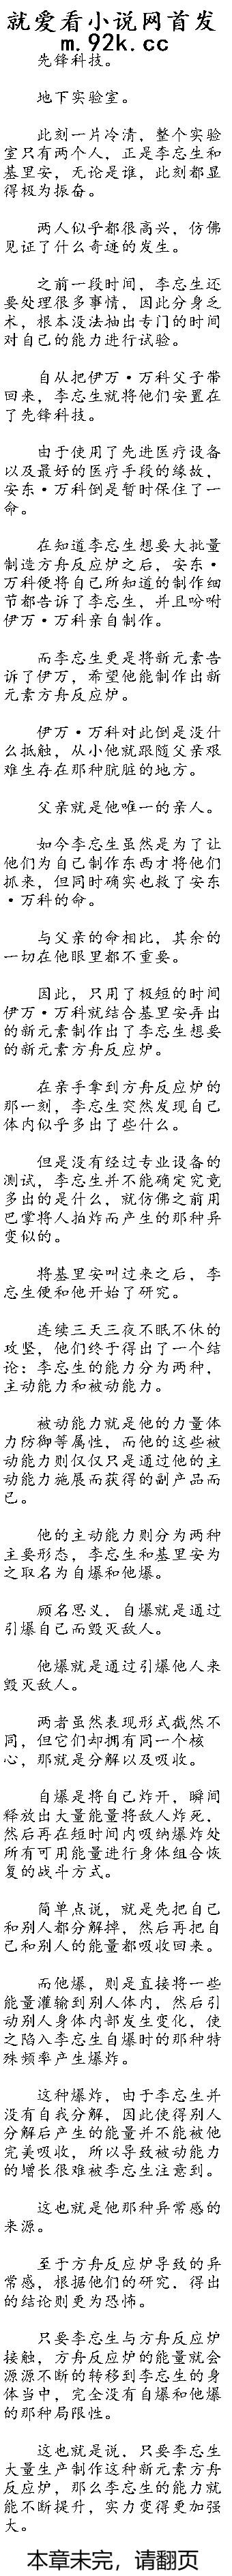 就爱看小说网首发
m.92k.cc
先锋科技。
地下实验室。
此刻一片冷清，整个实验
室只有两个人，正是李忘生和
基里安，无论是谁，此刻都显
得极为振奋。
两人似乎都很高兴，仿佛
见证了什么奇迹的发生。
之前一段时间，李忘生还
要处理很多事情，因此分身乏
术，根本没法抽出专门的时间
对自己的能力进行试验。
自从把伊万·万科父子带
回来，李忘生就将他们安置在
了先锋科技。
由于使用了先进医疗设备
以及最好的医疗手段的缘故，
安东·万科倒是暂时保住了一
命。
在知道李忘生想要大批量
制造方舟反应炉之后，安东·
万科便将自己所知道的制作细
节都告诉了李忘生，并且吩咐
伊万·万科亲自制作。
而李忘生更是将新元素告
诉了伊万，希望他能制作出新
元素方舟反应炉。
伊万·万科对此倒是没什
么抵触，从小他就跟随父亲艰
难生存在那种肮脏的地方。
父亲就是他唯一的亲人。
如今李忘生虽然是为了让
他们为自己制作东西才将他们
抓来，但同时确实也救了安东
·万科的命。
与父亲的命相比，其余的
一切在他眼里都不重要。
因此，只用了极短的时间
伊万·万科就结合基里安弄出
的新元素制作出了李忘生想要
的新元素方舟反应炉。
在亲手拿到方舟反应炉的
那一刻，李忘生突然发现自己
体内似乎多出了些什么。
但是没有经过专业设备的
测试，李忘生并不能确定究竟
多出的是什么，就仿佛之前用
巴掌将人拍炸而产生的那种异
变似的。
将基里安叫过来之后，李
忘生便和他开始了研究。
连续三天三夜不眠不休的
攻坚，他们终于得出了一个结
论：李忘生的能力分为两种，
主动能力和被动能力。
被动能力就是他的力量体
力防御等属性，而他的这些被
动能力则仅仅只是通过他的主
动能力施展而获得的副产品而
已。
他的主动能力则分为两种
主要形态，李忘生和基里安为
之取名为自爆和他爆。
顾名思义，自爆就是通过
引爆自己而毁灭敌人。
他爆就是通过引爆他人来
毁灭敌人。
两者虽然表现形式截然不
同，但它们却拥有同一个核
心，那就是分解以及吸收。
自爆是将自己炸开，瞬间
释放出大量能量将敌人炸死，
然后再在短时间内吸纳爆炸处
所有可用能量进行身体组合恢
复的战斗方式。
简单点说，就是先把自己
和别人都分解掉，然后再把自
己和别人的能量都吸收回来。
而他爆，则是直接将一些
能量灌输到别人体内，然后引
动别人身体内部发生变化，使
之陷入李忘生自爆时的那种特
殊频率产生爆炸。
这种爆炸，由于李忘生并
没有自我分解，因此使得别人
分解后产生的能量并不能被他
完美吸收，所以导致被动能力
的增长很难被李忘生注意到。
这也就是他那种异常感的
来源。
至于方舟反应炉导致的异
常感，根据他们的研究，得出
的结论则更为恐怖。
只要李忘生与方舟反应炉
接触，方舟反应炉的能量就会
源源不断的转移到李忘生的身
体当中，完全没有自爆和他爆
的那种局限性。
这也就是说，只要李忘生
大量生产制作这种新元素方舟
反应炉，那么李忘生的能力就
能不断提升，实力变得更加强
大。
本章未完，请翻页